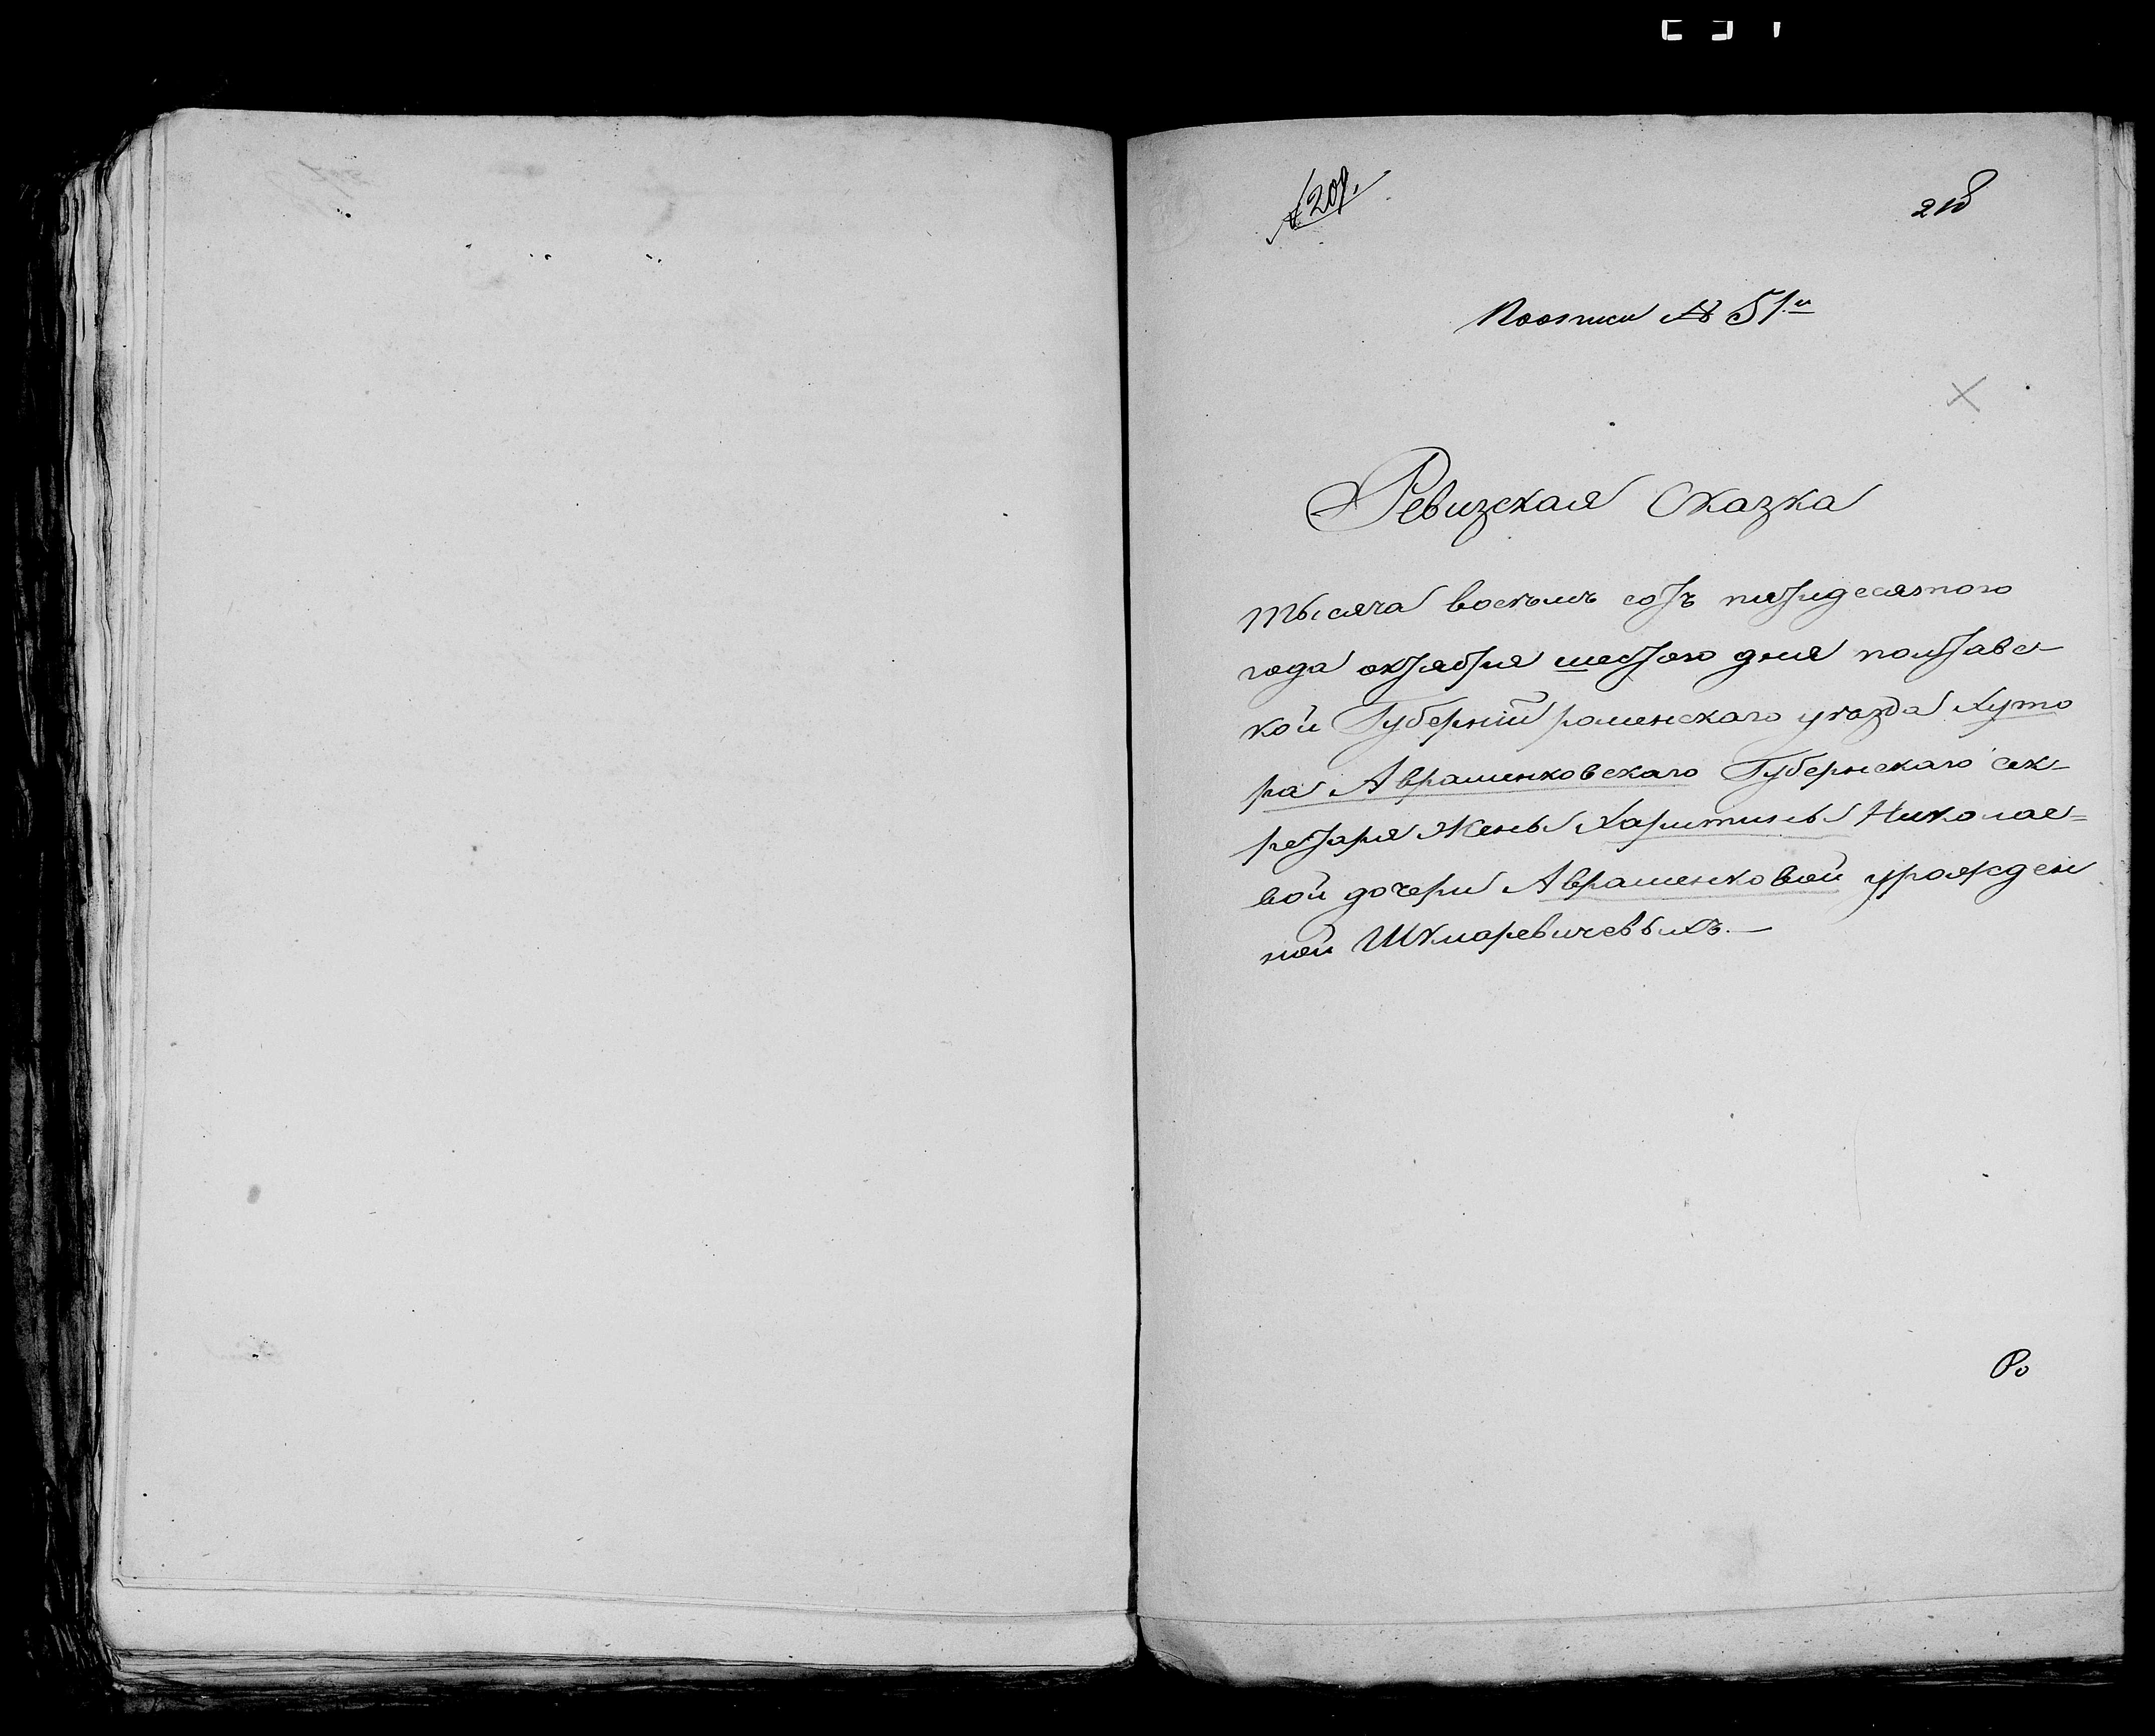 № 209.
218
По описи № 51й
Ревизская Сказка
тысяча восемь сотъ пятидесятого
года октября шестого дня полтавс
кой Губерніи роменскаго уезда хуто
ра Аврашенковскаго Губернскаго сек-
ретаря жены Харитины Николае=
вой дочери Аврашенковой урожден
ной Шкларевичевыхъ.
Ро